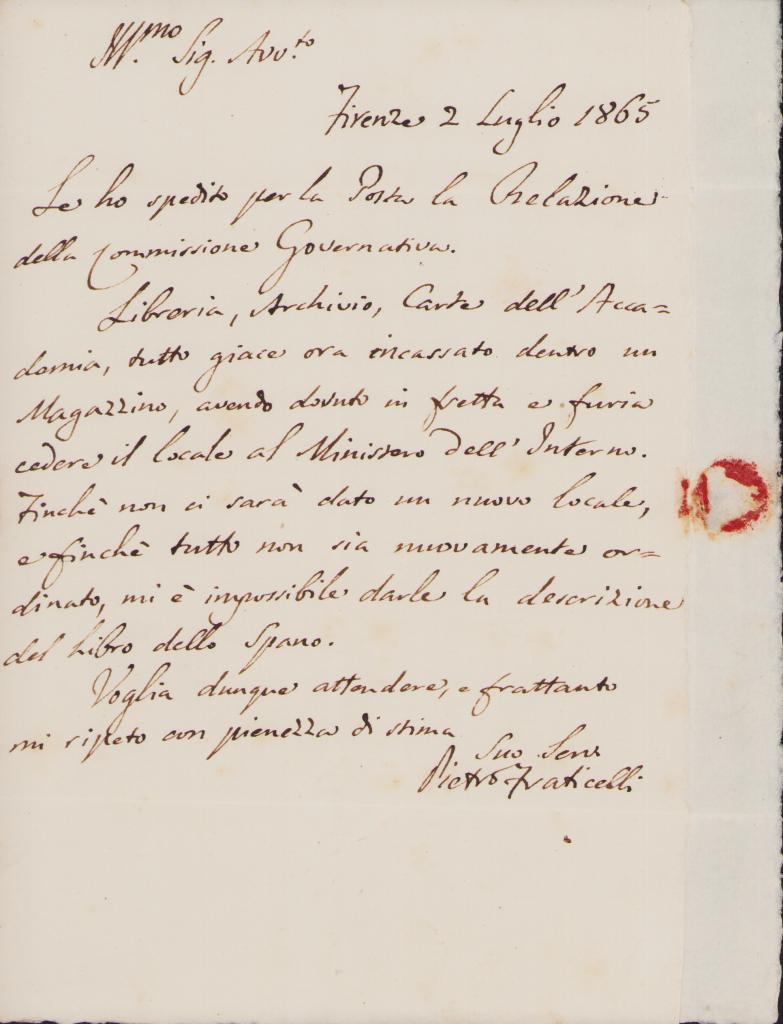 Ill.mo Sig. Avv.to
Firenze 2 Luglio 1865
Le ho spedito per la Posta la Relazione
della Commissione Governativa.
Libreria, Archivio, Carte dell' Acca=
demia, tutto giace ora incassato dentro un
Magazzino, avendo dovuto in fretta e furia
cedere il locale al Ministero dell' Interno.
Finchè non ci sarà dato un nuovo locale,
e finchè tutto non sia nuovamente or=
dinato, mi è impossibile darle la descrizione
del libro dello Spano.
Voglia dunque attendere, e frattanto
mi ripeto con pienezza di stima
Suo Serv
Pietro Fraticelli